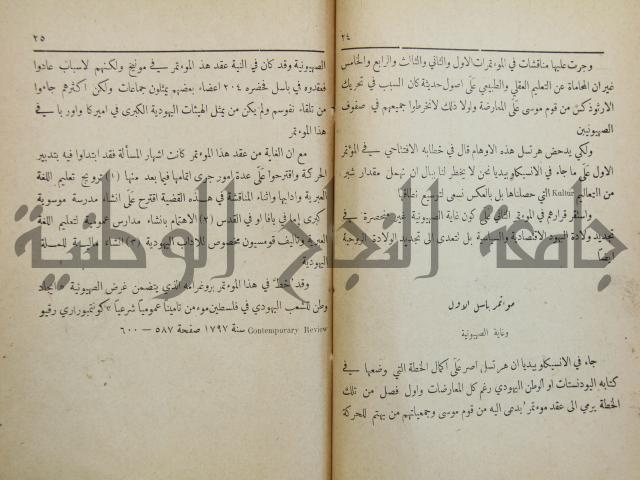 ٢٤
وجرت عليها مناقشات في المؤتمرات الاول والثاني والثالث والرابع والخامس
غير ان المحاماة عن التعليم العقلي والطبيعي على اصول حديثة كان السبب في تحريك
الارثوذكس من قوم موسى على المعارضة ولولا ذلك لانخرطوا جميعهم في صفوف
الصهيونيين
ولكي يدحض هرتسل هذه الاوهام قال في خطابه الافتتاحي في المؤتمر
الاول على ما جاء في الانسيكلوبيديا نحن لا يخطر لنا ببال ان نهمل مقدار شبر
من التعاليم Kultur التي حصلناها بل بالعكس نسعى لتوسيع نطاقها
واستقر قرارهم في المؤتمر الثاني على كون غاية الصهيونية غير منحصرة في
تجديد ولادة اليهود الاقتصادية والسياسية بل تتعدى الى تجديد الولادة الروحية
ايضاً
مؤتمر باسل الاول
وغاية الصهيونية
جاء في الانسيكلوبيديا ان هرتسل اصر على اكمال الخطة التي وضعها في
كتابه اليودنستات او الوطن اليهودي رغم كل المعارضات واول فصل من تلك
الخطة يرمي الى عقد مؤتمر يدعى اليه من قوم موسى وجمعياتهم من يهتم للحركة
٢٥
الصهيونية وقد كان في النية عقد هذا المؤتمر في مونيخ ولكنهم لاسباب عادوا
فعقدوه في باسل فحضره ٢٠٤ اعضاء بعضهم يمثلون جماعات ولكن اكثرهم جاءوا
من تلقاء نفوسهم ولم يكن من يمثل الهيئات اليهودية الكبرى في اميركا واوربا في
هذا المؤتمر
مع ان الغاية من عقد هذا المؤتمر كانت اشهار المسألة فقد ابتدأوا فيه بتدبير
الحركة واقترحوا على عدة امور جرى اتمامها فيما بعد منها (١) ترويج تعليم اللغة
العبرية وادابها واثناء المناقشة في هذه القضية اقترح على انشاء مدرسة موسوية
كبرى اما في يافا او في القدس (٢) الاهتمام بانشاء مدارس عمومية لتعليم اللغة
العبرية وتأليف قومسيون مخصوص للاداب اليهودية (٣) انشاء مالية للمسألة
اليهودية
وقد خطَّ في هذا المؤتمر بروغرامه الذي يتضمن غرض الصهيونية «ايجاد
وطن للشعب اليهودي في فلسطين مؤمن تاميناً عمومياً شرعياً» كونتمبوراري رفيو
Contemporary Review سنة ١٧٩٧ صفحة ٥٨٧ — ٦٠٠
جامعة النجاح الوطنية